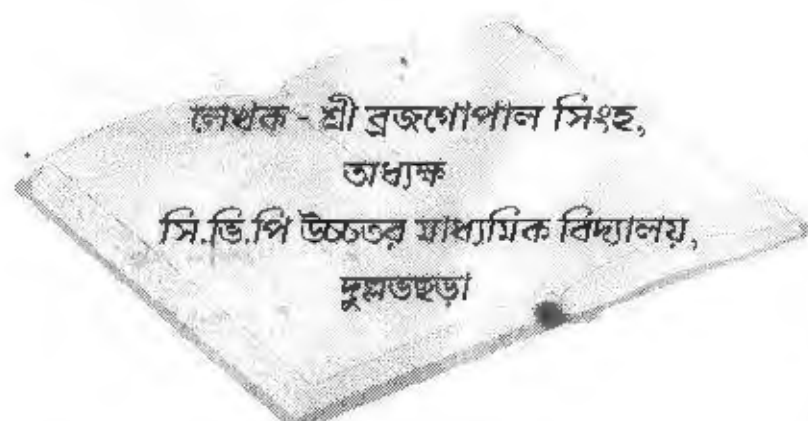 লেখক - শ্রী ব্রজগোপাল সিংহ,
অধ্যক্ষ
সি.ভি.পি উচ্চতর মাধ্যমিক বিদ্যালয়,
দুল্লভছড়া